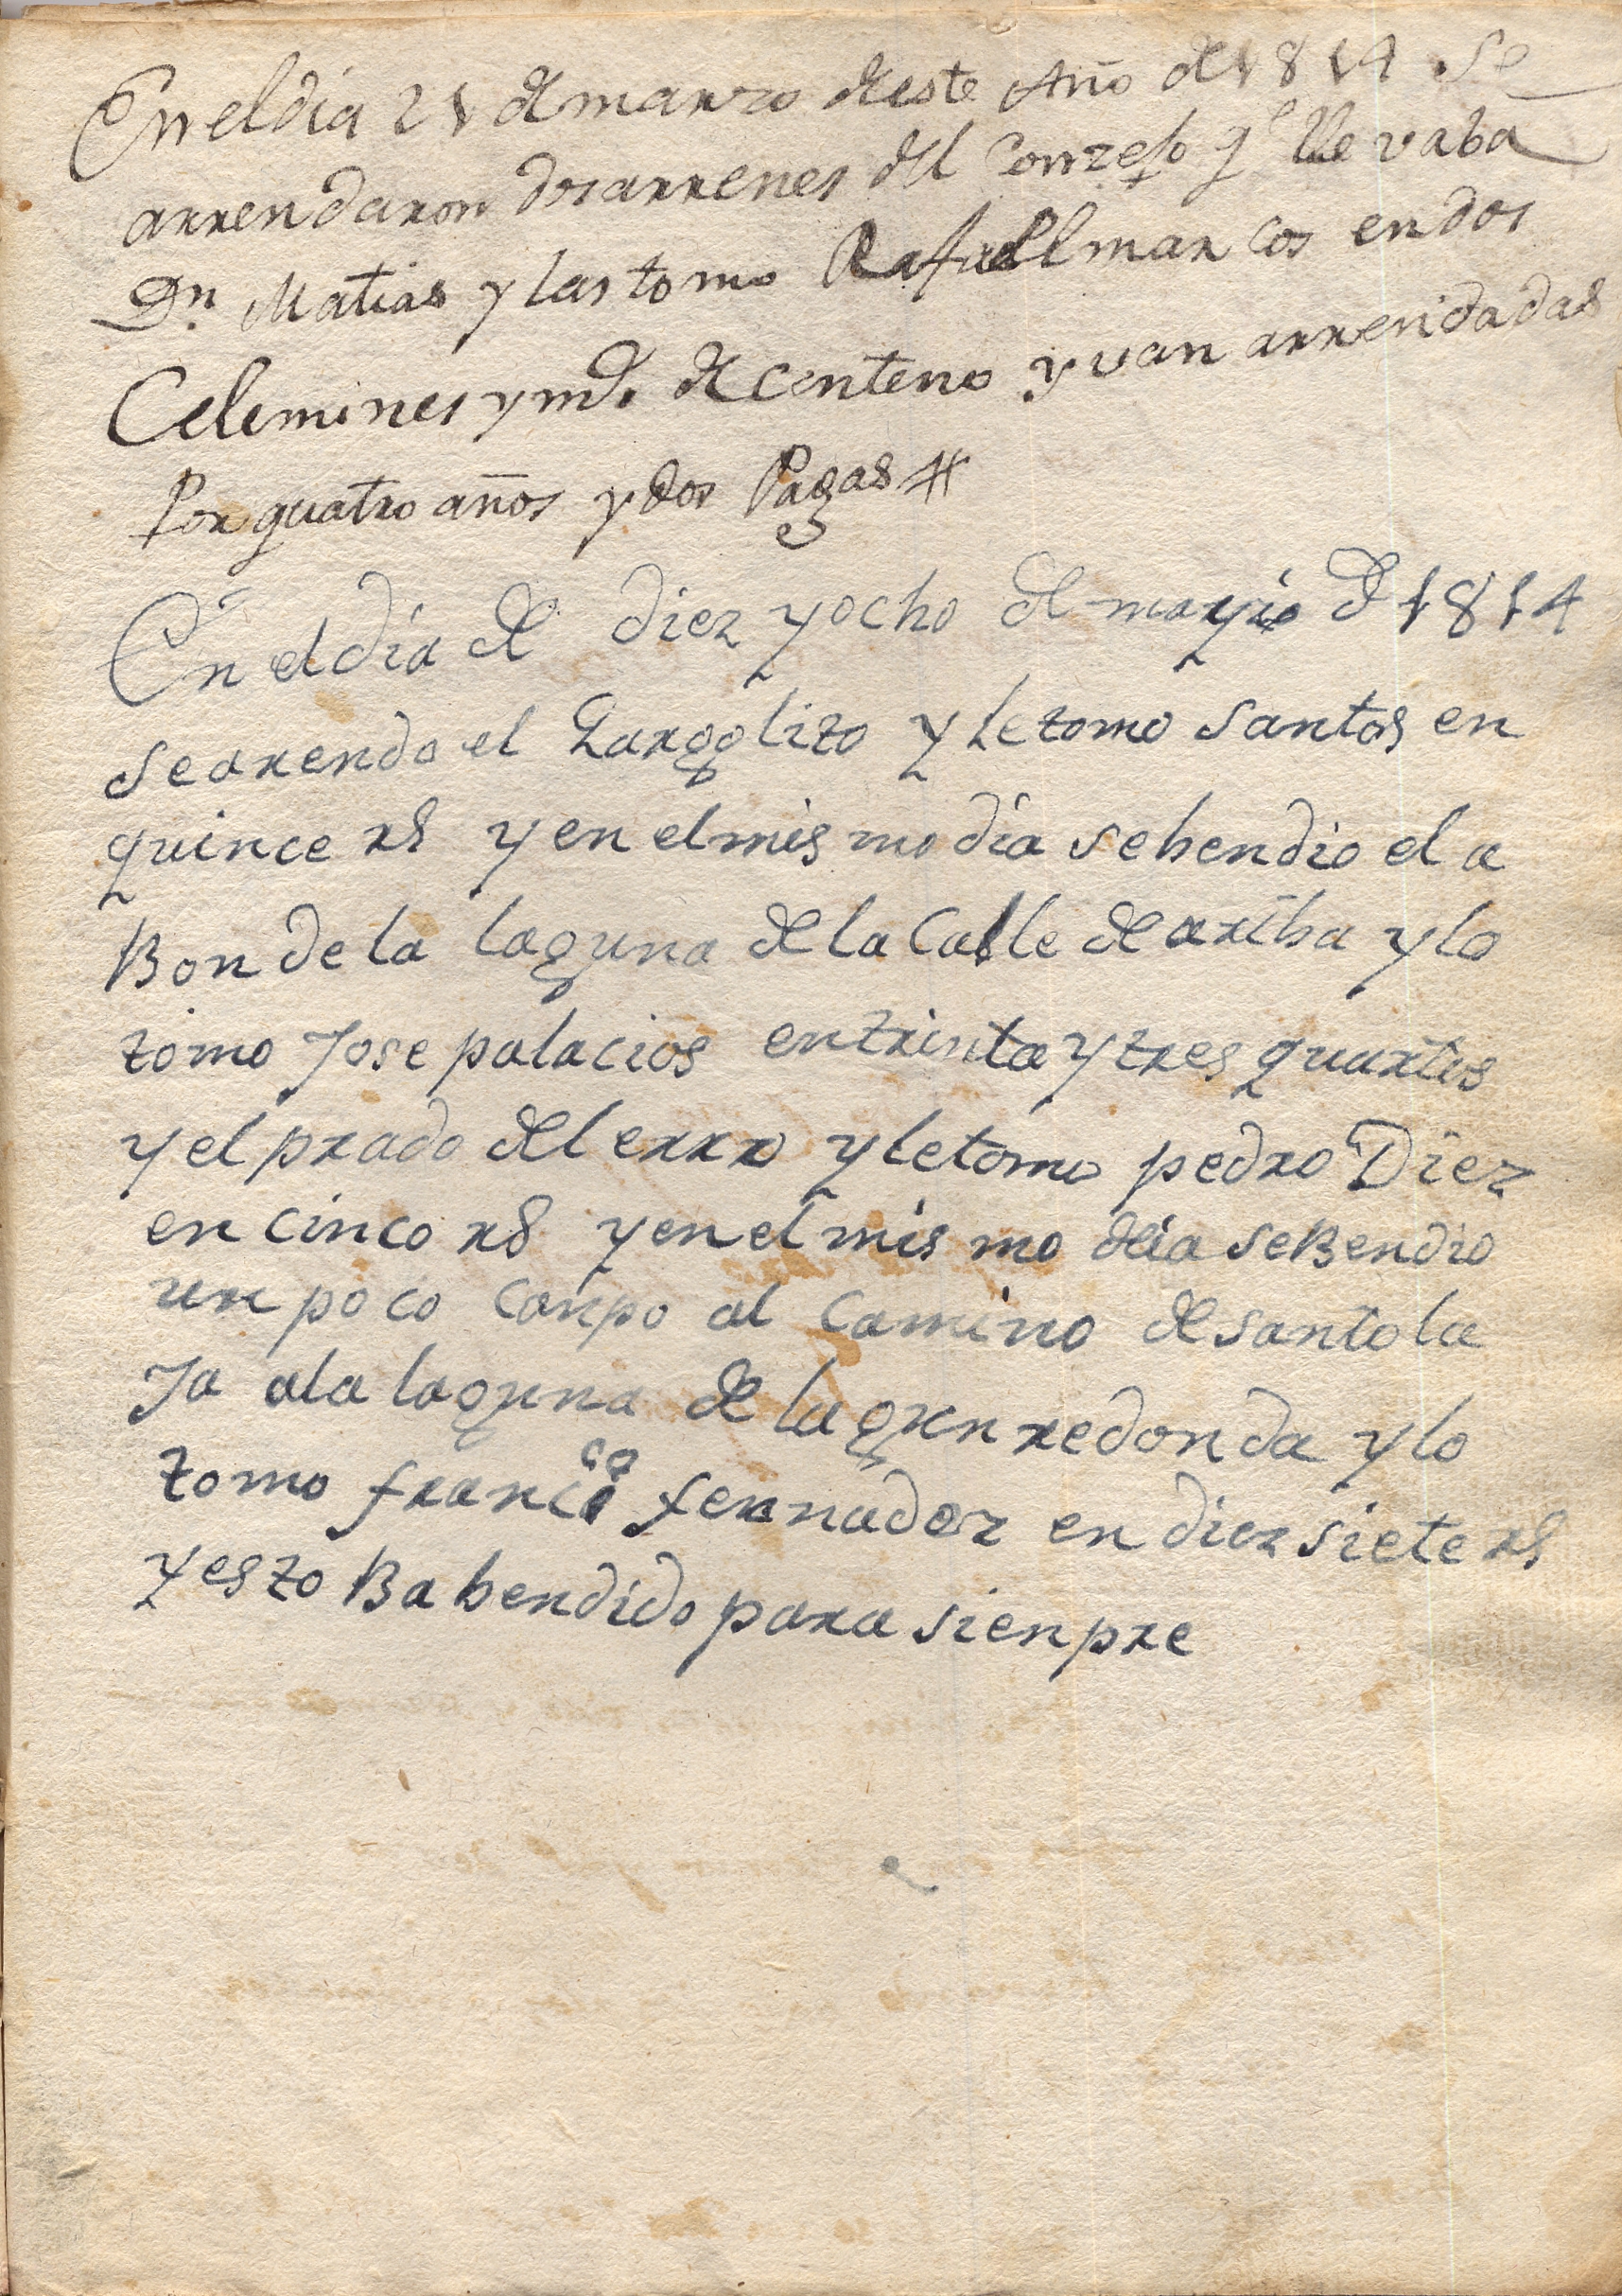 En el dia 21 de marzo de este Año de 1814 se
arrendaron dos arrenes del Conzejo qe lle vaba
Dn Matias y las tomo Rafael marcos en dos
Celemines y mdo de centeno y van arrendadas
Por quatro años y dos Pagas #
En el dia de diez y ocho de mayio d 1814
se arendo el y le tomo Santos en
quince rs y en el mis mo dia se bendio el a
Bon de la laguna de la Calle de ariba y lo
tomo Jose palacios en trinta y tres quartos
y el prado del erro y le tomo pedro Diez
en cinco rs y en el mis mo dia se Bendio
un poco canpo al camino de santo la
Ja a la laguna de la redonda y lo
tomo franco fernadez en diez siete rs
y esto Ba bendido para sienpre